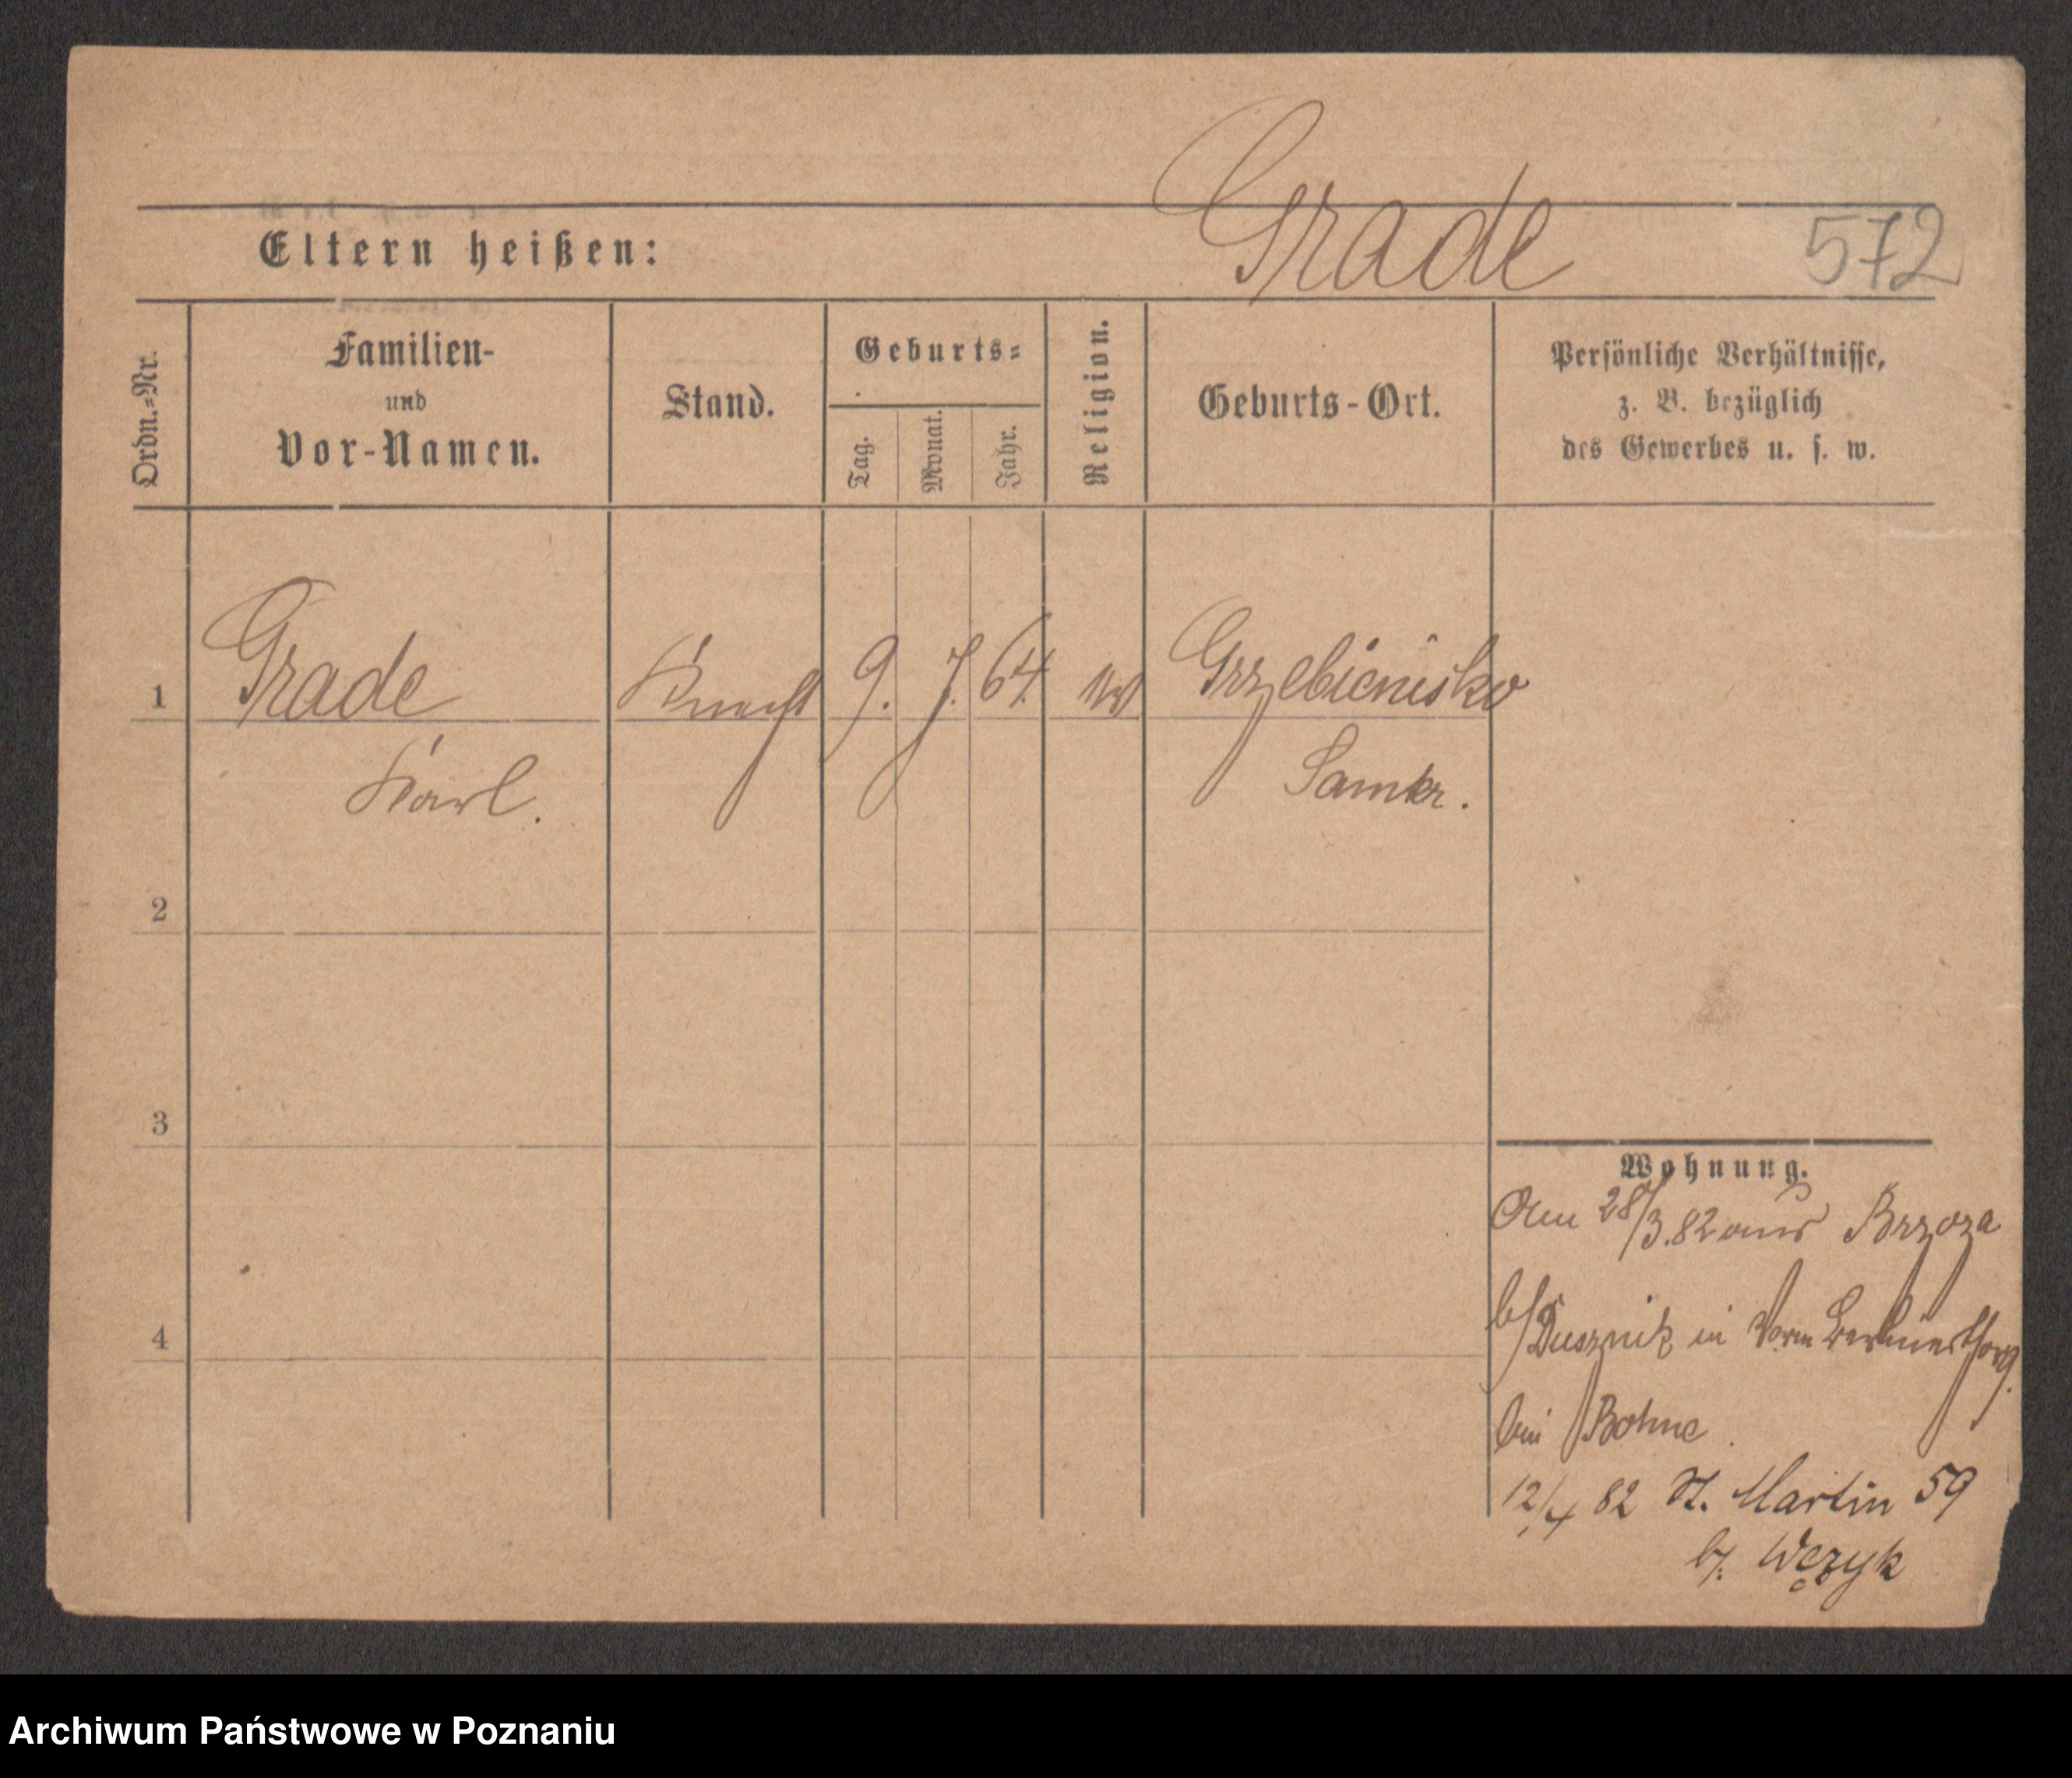 Grade
572
Eltern heißen:
Ordn.=Nr.
Familien-
und
Vor-Namen.
Stand.
Geburts=
Tag.
Monat.
Jahr.
Religion.
Geburts-Ort.
Persönliche Verhältnisse,
z. B. bezüglich
des Gewerbes u. s. w.
1
Grade Knecht 9. 7. 64. Grzebienisko
Karl. Samter.
2
3
4
Wohnung.
Am 28/3.82 aus Brzoza
b/Dusznik in
bei Bohne.
12/4 82 St. Martin 59
b/. Węzyk
Archiwum Państwowe w Poznaniu